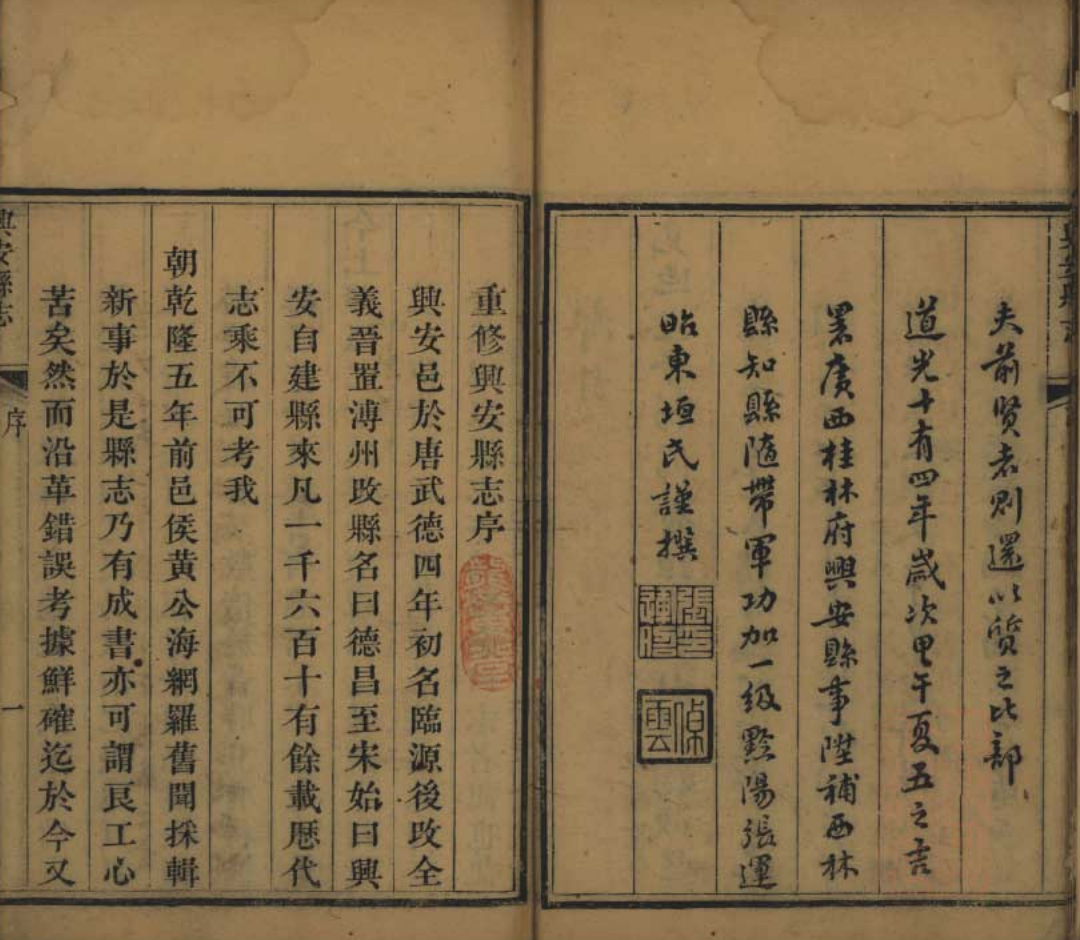 夫前賢者則還以質之比部
道光十有四年歲次甲午夏五之吉
署廣西桂林府興安縣事陞補西林
縣知縣隨帶軍功加一級黔陽張運
昭東垣氏謹撰
重修興安縣志序
興安邑於唐武德四年初名臨源後改全
義晉置溥州改縣名曰德昌至宋始曰興
安自建縣來凡一千六百十有餘載歷代
志乘不可考我
朝乾隆五年前邑侯黃公海網羅舊聞採輯
新事於是縣志乃有成書亦可謂良工心
苦矣然而沿革錯誤考據鮮確迄於今又
興安縣志
序
一